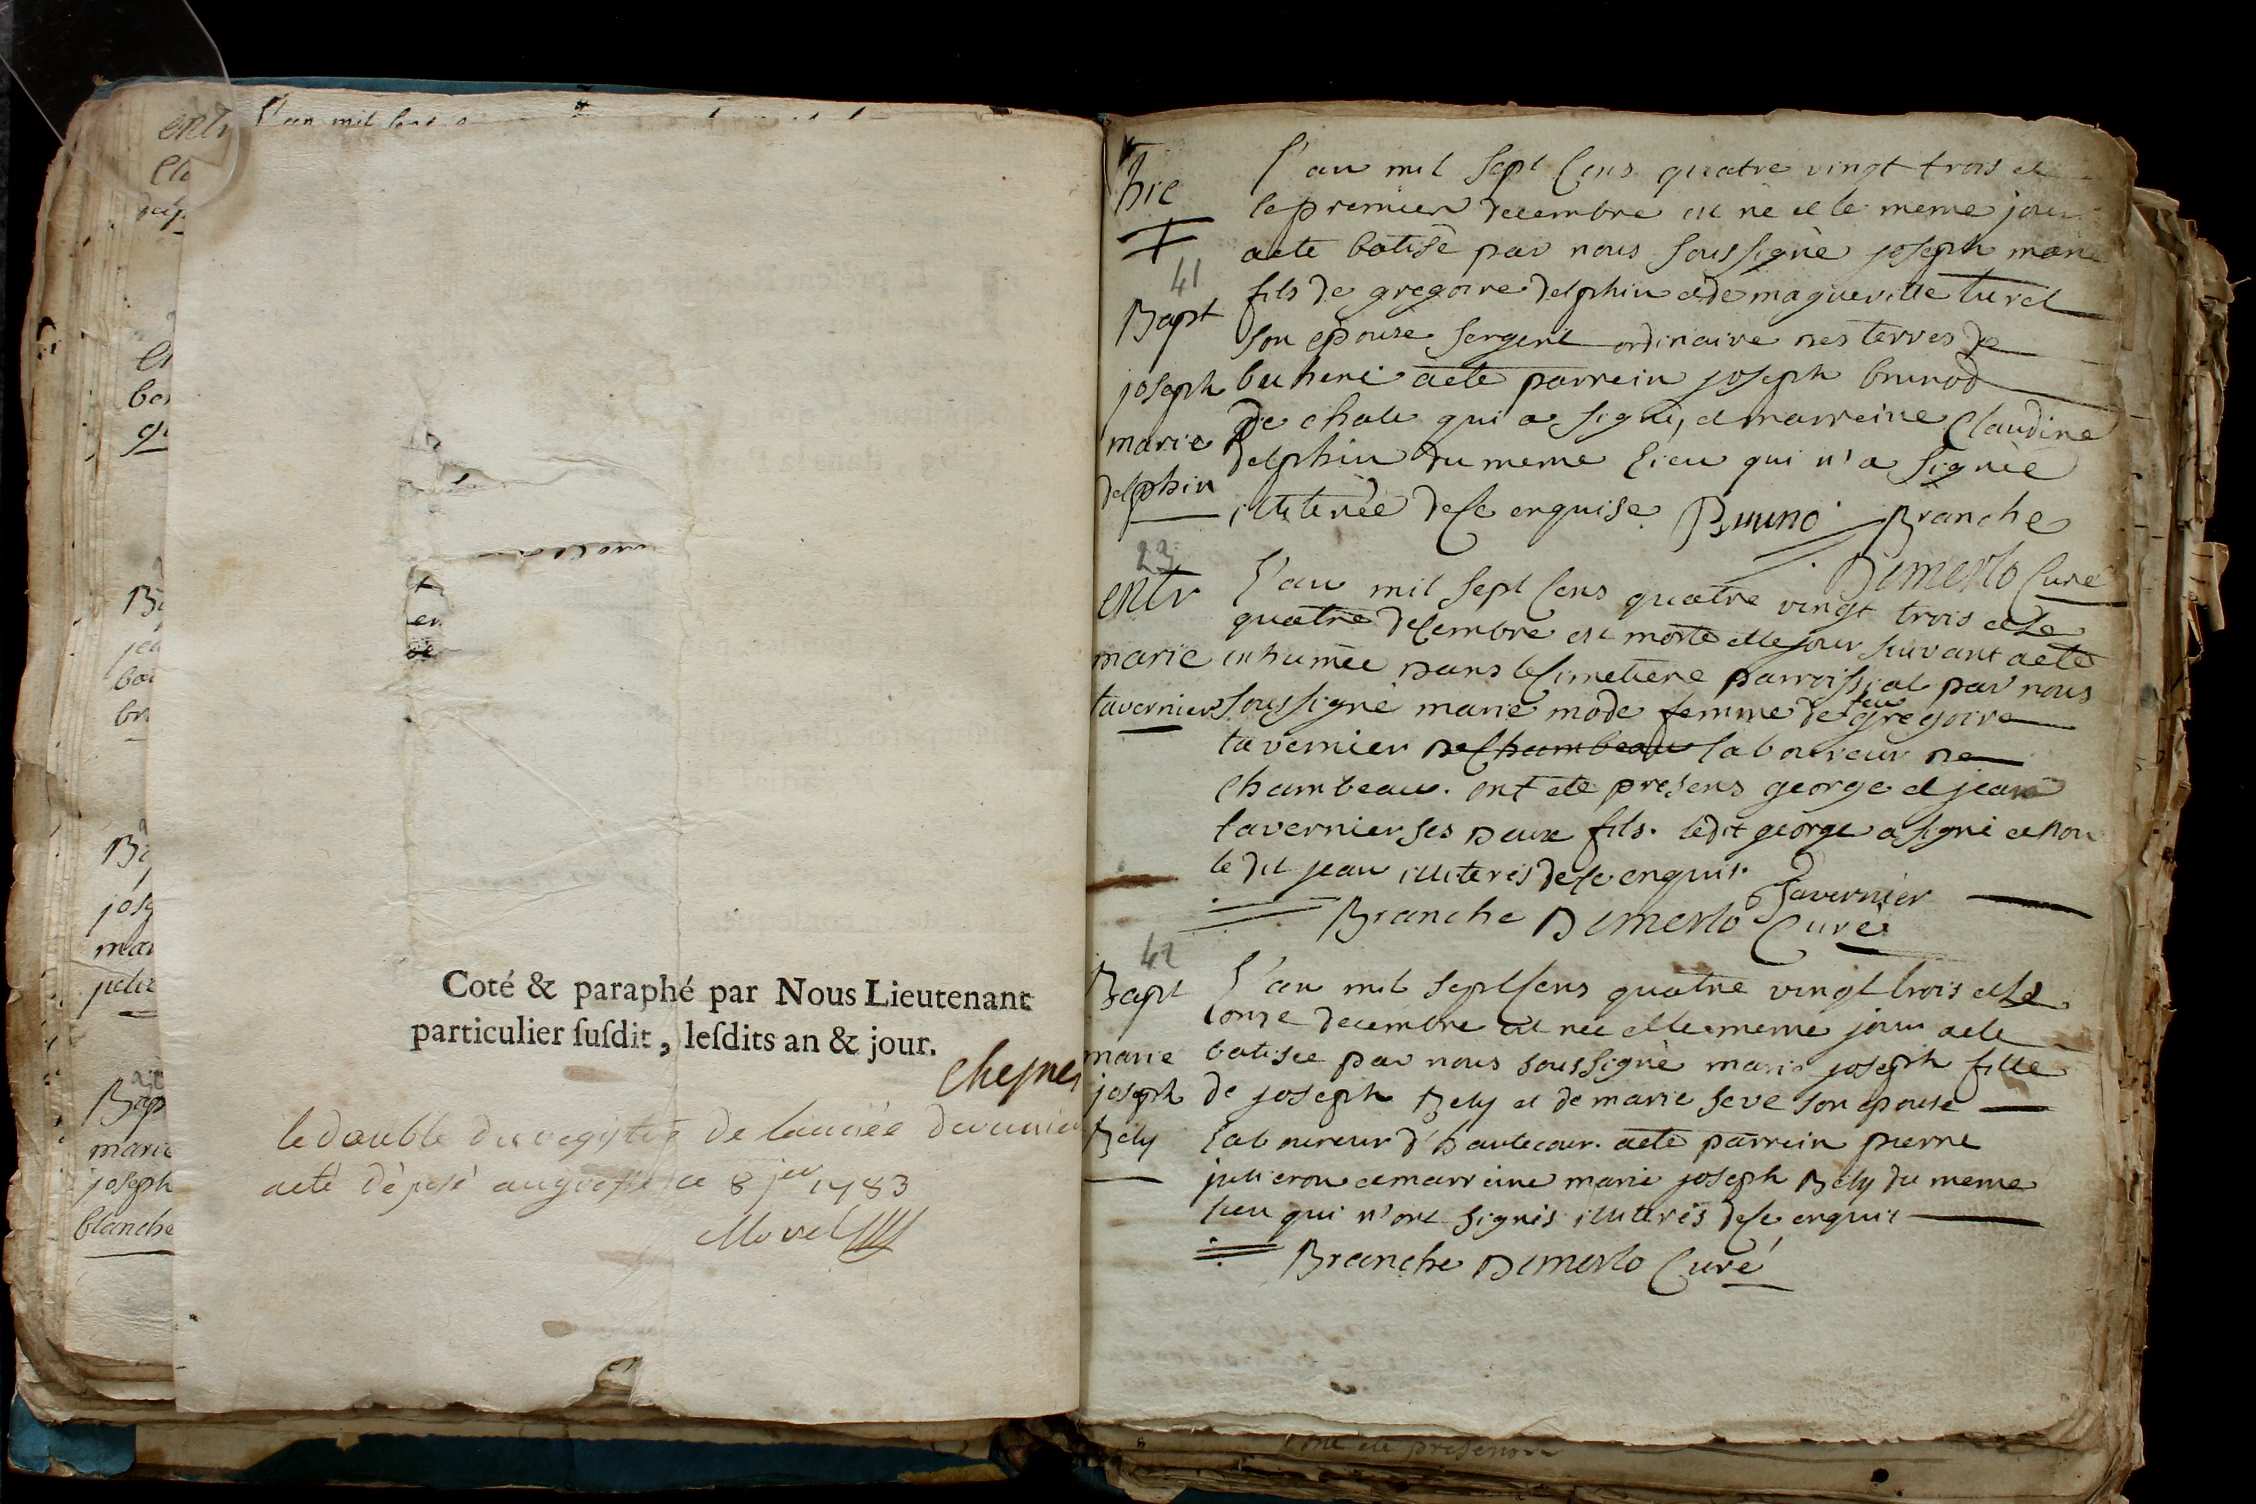 entr
Cla
L'an mil sept
Ba
jea
bo
br
Ba
jose
mar
Bap
marie
joseph
blanche
Coté & paraphé par Nous Lieutenant
particulier ſuſdit, leſdits an & jour.
le double du registre de l'année derniere
aeté déposé au greffe ce 8 jer 1783
Morel
hic
41
Bapt
joseph
marie
delphin
L'an mil sept cens quatre vingt trois et
le premier decembre est né et le meme jour
aeté batisé par nous soussigné joseph marie
fils de gregoire delphin et de magueritte turel
son epouse sergent ordinaire des terres de
aeté parrein joseph brunod
de chale qui a signé, et marreine Claudine
delphin du meme lieu qui n'a signée
illiterée de ce enquise Bruno Branche
Dimerlo Curé
23
entr
marie
tavernier
L'an mil sept cens quatre vingt trois et le
quatre decembre est morte et le jour suivant aeté
inhumée dans le cimetiere parroissial par nous
soussigné marie mode femme de feu gregoire
tavernier de Chambeau laboureur de
Chambeau. ont eté presens george et jean
tavernier ses deux fils. ledit george a signé et non
le dit jean illiterés de ce enquis.
Tavernier
Branche Dimerlo Curé
42
Bapt
marie
joseph
Bély
L'an mil sept cens quatre vingt trois et le
onze decembre est née et le meme jour aeté
batisée par nous soussigné marie joseph fille
de joseph Bely et de marie seve son epouse
laboureur d'hautecour. aeté parrein pierre
julieron et marreine marie joseph Bély du meme
lieu qui n'ont signés illiterés de ce enquis
Branche Dimerlo Curé
ont eté presens